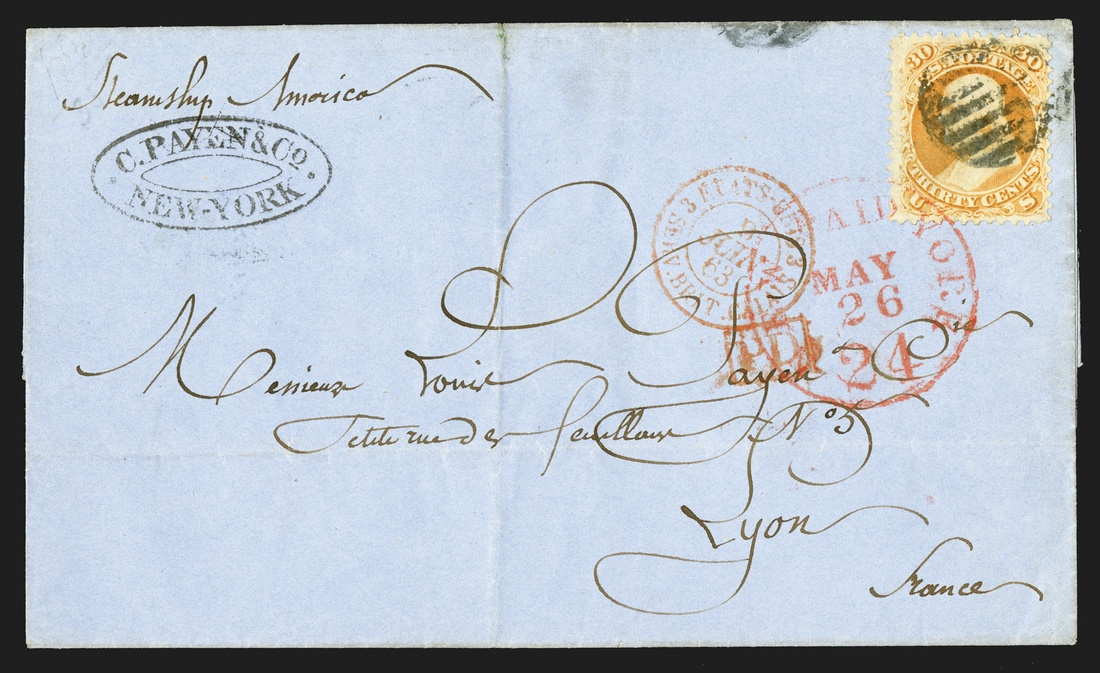 Steamship America
C. PAYEN & Co
NEW-YORK
30 30
U.S. POSTAGE
THIRTY CENTS
U S
ETATS-UNIS
JUIN
63
PAID
YORK
MAY
26
24
PD
Messieurs Louis Payen & Cie
Petite rue des feuillans No 5
Lyon
France